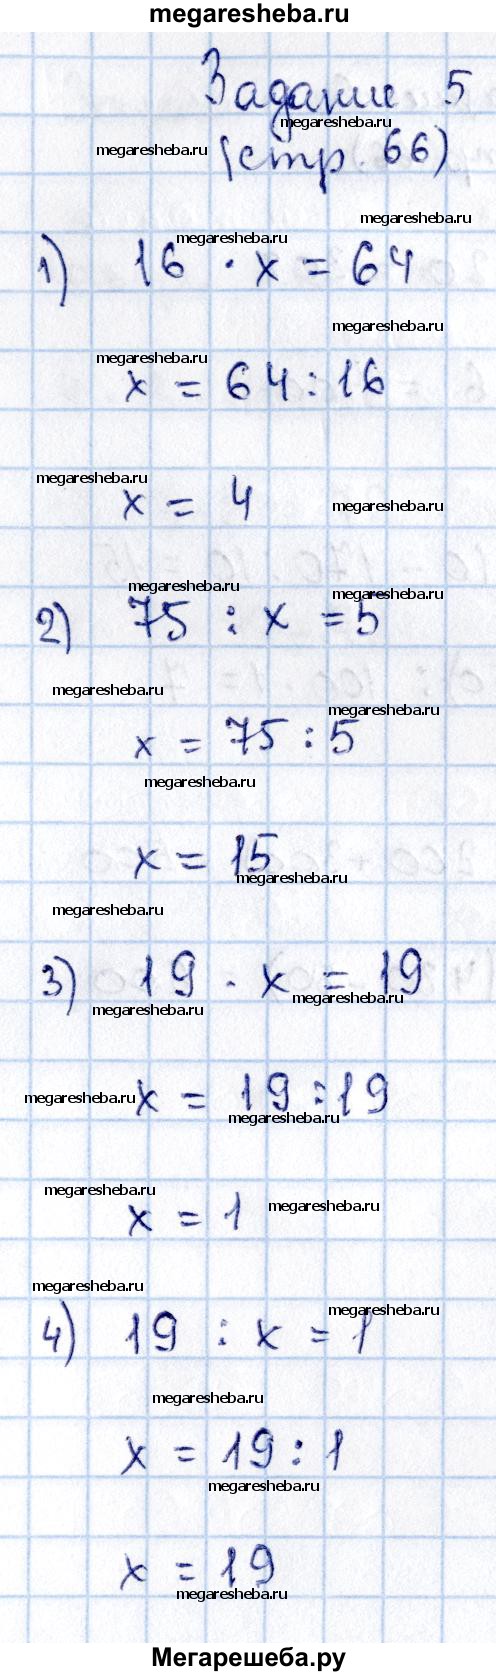 megaresheba.ru
Задание 5
megaresheba.ru
megaresheba.ru
(стр. 66)
megaresheba.ru
megaresheba.ru
1) 16 · x = 64
megaresheba.ru
megaresheba.ru
x = 64 : 16
megaresheba.ru
x = 4
megaresheba.ru
megaresheba.ru
megaresheba.ru
2) 75 : x = 5
megaresheba.ru
megaresheba.ru
x = 75 : 5
megaresheba.ru
x = 15
megaresheba.ru
megaresheba.ru
3) 19 · x = 19
megaresheba.ru
megaresheba.ru
megaresheba.ru
x = 19 : 19
megaresheba.ru
megaresheba.ru
x = 1
megaresheba.ru
megaresheba.ru
megaresheba.ru
4) 19 : x = 1
megaresheba.ru
x = 19 : 1
megaresheba.ru
x = 19
megaresheba.ru
Мегарешеба.ру